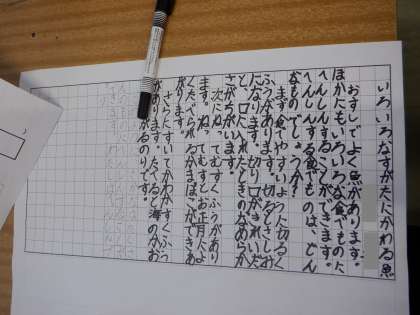 いろいろなすがたにかわる魚
おすしでよく魚があります。
ほかにもいろいろな食べものに
へんしんすることができます。
へんしんする食べものは、どん
なものでしょうか？
まず食べやすいよ
ふうがあります。切るとさしみ
になります。切り口がきれいだ
と、口に入れたときのなめらか
さがちがいます。
次にねって、むすくふうがあり
ます。ねってむすとお正月によ
くたべられるかまぼこができあ
がります。
さらにすいてかわかすくふう
があります。たべると海のかお
がるのりです。